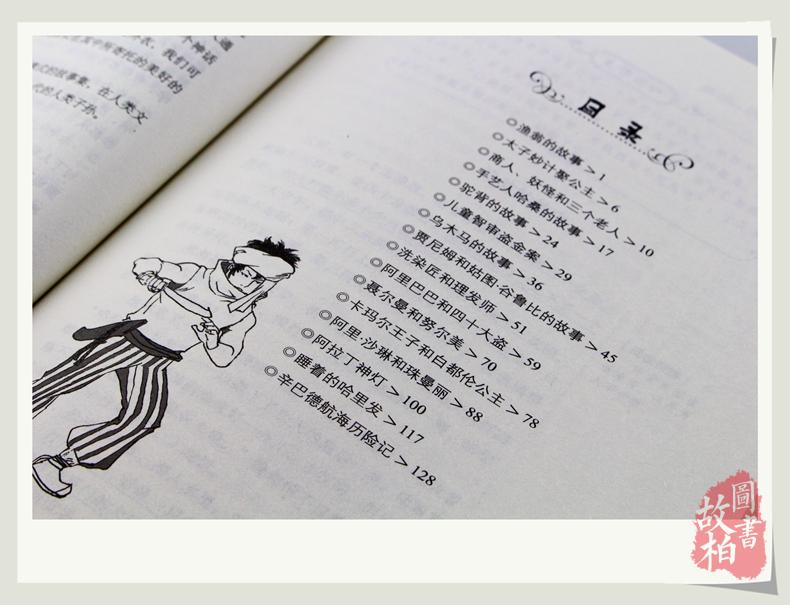 人通
个神话
我们可
所寄托的美好的
式的故事集，在人类文
的人类子孙。
目录
◎渔翁的故事＞1
◎太子妙计娶公主＞6
◎商人、妖怪和三个老人＞10
◎手艺人哈桑的故事＞17
◎驼背的故事＞24
◎儿童智审盗金案＞29
◎乌木马的故事＞36
◎贾尼姆和姑图·谷鲁比的故事＞45
◎洗染匠和理发师＞51
◎阿里巴巴和四十大盗＞59
◎聂尔曼和努尔美＞70
◎卡玛尔王子和白都伦公主＞78
◎阿里·沙琳和珠曼丽＞88
◎阿拉丁神灯＞100
◎睡着的哈里发＞117
◎辛巴德航海历险记＞128
故柏
圖書